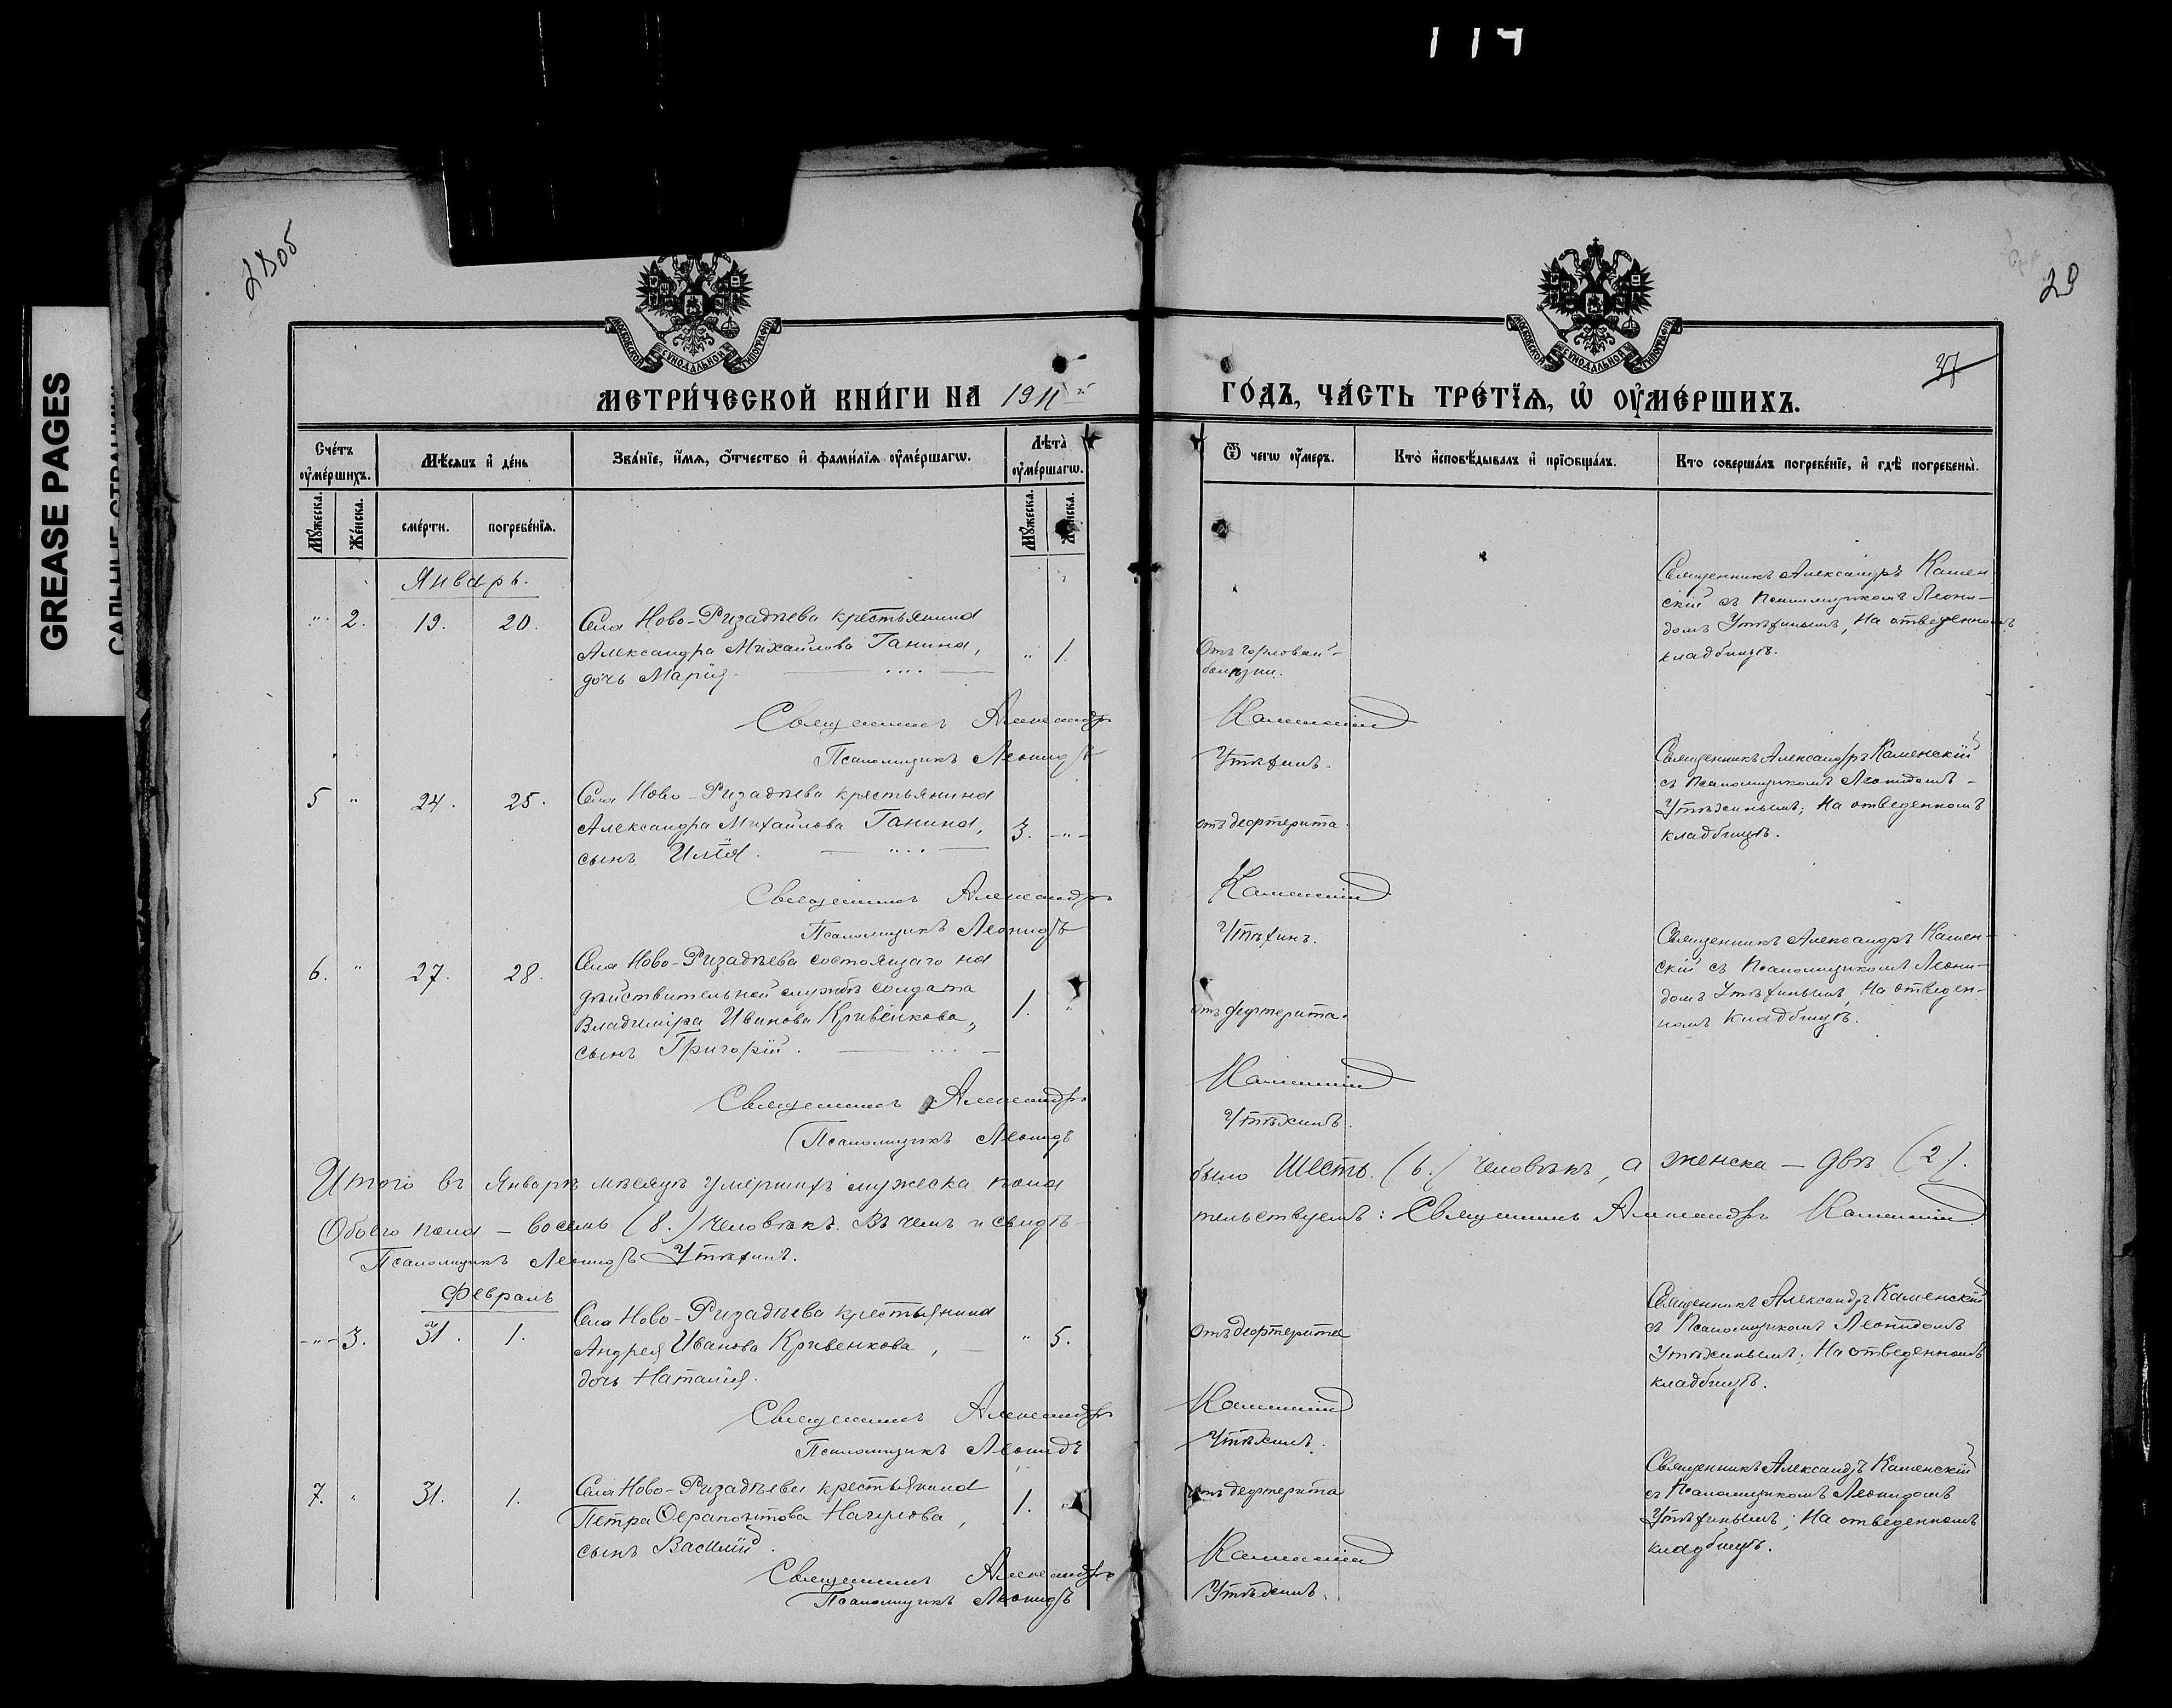 114
GREASE PAGES
28об
29
37
МОСКОВСКОЙ СУНОДАЛЬНОЙ ТИПОГРАФІИ
МОСКОВСКОЙ СУНОДАЛЬНОЙ ТИПОГРАФІИ
МЕТРИ́ЧЕСКОЙ КНИ́ГИ НА 1911й ГО́ДЪ, ЧА́СТЬ ТРЕ́ТЇѦ, Ѡ҆ ОУ҆МЕ́РШИХЪ.
Сче́тъ оу҆ме́ршихъ.
Мѣ́сѧцъ и҆ де́нь
Зва́нїе, и҆́мѧ, ѻ҆́тчество и҆ фами́лїѧ оу҆ме́ршагѡ.
Лѣ́та оу҆ме́ршагѡ.
Ѿ чегѡ̀ оу҆́меръ.
Кто̀ и҆сповѣ́дывалъ и҆ прїѡбща́лъ.
Кто̀ соверша́лъ погребе́нїе, и҆ гдѣ̀ погребены̀.
Мꙋ́жеска.
Же́нска.
сме́рти.
погребе́нїѧ.
Мꙋ́жеска.
Же́нска.
Январь.
" 2. 19. 20. Села Ново-Ризадѣева крестьянина
Александра Михайлова Ганина,
дочь Марія.
" 1.
Отъ горловой
болѣзни.
Священникъ Александръ Камен-
скій съ Псаломщикомъ Леони-
домъ Утѣхинымъ, На отведенномъ
кладбищѣ.
Священникъ Александръ Каменскій
Псаломщикъ Леонидъ Утѣхинъ.
5 " 24. 25. Села Ново-Ризадѣева крестьянина
Александра Михайлова Ганина,
сынъ Илія.
3. "
отъ дефтерита.
Священникъ Александръ Каменскій
съ Псаломщикомъ Леонидомъ
Утѣхинымъ; На отведенномъ
кладбищѣ.
Священникъ Александръ Каменскій
Псаломщикъ Леонидъ Утѣхинъ.
6. " 27. 28. Села Ново-Ризадѣева состоящаго на
дѣйствительной службѣ солдата
Владиміра Иванова Кривенкова,
сынъ Григорій.
1. "
отъ дефтерита.
Священникъ Александръ Камен-
скій съ Псаломщикомъ Леони-
домъ Утѣхинымъ, На отведен-
номъ кладбищѣ.
Священникъ Александръ Каменскій
Псаломщикъ Леонидъ Утѣхинъ.
Итого въ Январѣ мѣсяцѣ умершихъ мужеска пола было Шесть (6.) человѣкъ, а женска — двѣ (2).
Обоего пола — восемь (8.) человѣкъ. Въ чемъ и свидѣ-тельствуемъ: Священникъ Александръ Каменскій
Псаломщикъ Леонидъ Утѣхинъ.
Февраль
" 3. 31. 1. Села Ново-Ризадѣева крестьянина
Андрея Иванова Кривенкова,
дочь Наталія.
" 5.
отъ дефтерита
Священникъ Александръ Каменскій
съ Псаломщикомъ Леонидомъ
Утѣхинымъ; На отведенномъ
кладбищѣ.
Священникъ Александръ Каменскій
Псаломщикъ Леонидъ Утѣхинъ.
7. " 31. 1. Села Ново-Ризадѣева крестьянина
Петра Ферапонтова
сынъ Василій.
1. "
отъ дефтерита
Священникъ Александръ Каменскій
съ Псаломщикомъ Леонидомъ
Утѣхинымъ; На отведенномъ
кладбищѣ.
Священникъ Александръ Каменскій
Псаломщикъ Леонидъ Утѣхинъ.